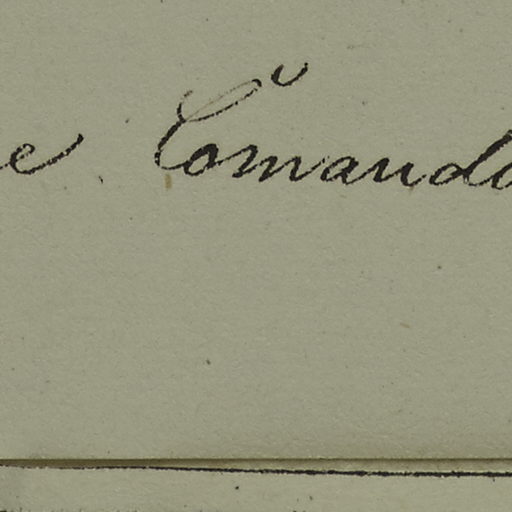 e Com̄ando